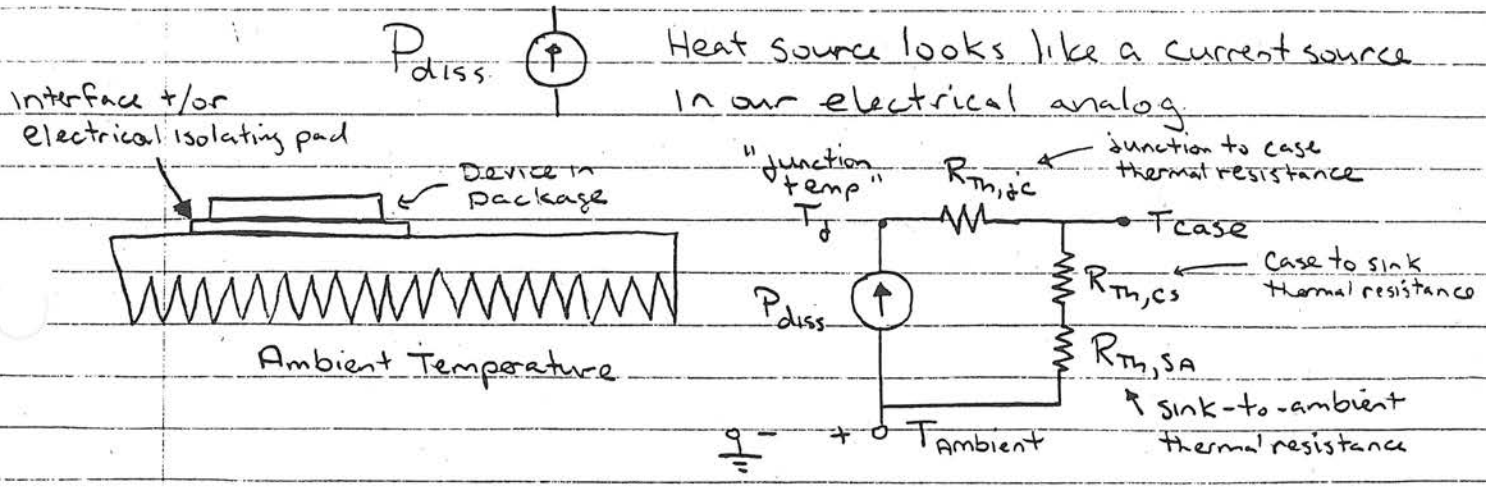 Pdiss
Heat source looks like a current source
in our electrical analog.
Interface +/or
electrical isolating pad
Device in
package
Ambient Temperature
"junction
temp"
Tj
RTh,jc
junction to case
thermal resistance
Tcase
Pdiss
RTh,cs
case to sink
thermal resistance
RTh,SA
sink-to-ambient
thermal resistance
- + TAmbient